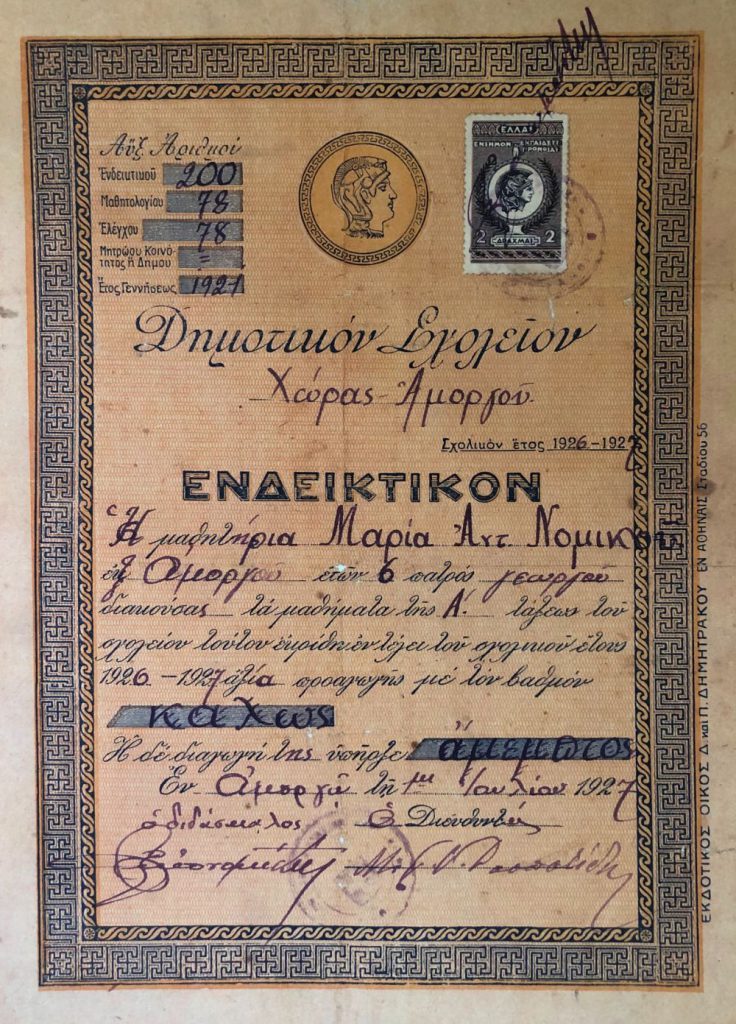 Αὔξ. Ἀριθμοί
Ἐνδεικτικοῦ 200
Μαθητολογίου 78
Ἐλέγχου 78
Μητρῴου Κοινό-
τητος ἢ Δήμου =
Ἔτος Γεννήσεως 1921
ΕΛΛΑΣ
ΕΝΣΗΜΟΝ ΕΚΠΑΙΔΕΥΤ
ΠΡΟΝΟΙΑΣ
2 ΔΡΑΧΜΑΙ 2
Δημοτικὸν Σχολεῖον
Χώρας Ἀμοργοῦ
Σχολικὸν ἔτος 1926-1927
ΕΝΔΕΙΚΤΙΚΟΝ
Ἡ μαθητήρια Μαρία Ἀντ. Νομικοῦ
ἐξ Ἀμοργοῦ ἐτῶν 6 πατρὸς γεωργοῦ
διακούσασ τὰ μαθήματα τῆς Α΄. τάξεως τοῦ
σχολείου τούτου ἐκρίθη ἐν τέλει τοῦ σχολικοῦ ἔτους
1926-1927 ἀξία προαγωγῆς μὲ τὸν βαθμὸν
καλῶς
Ἡ δὲ διαγωγή της ὑπῆρξε ἄμεμπτος
Ἐν Ἀμοργῷ τῇ 1ῃ Ἰουλίου 1927
ὁ διδάσκαλος Ὁ Διευθυντής
ΕΚΔΟΤΙΚΟΣ ΟΙΚΟΣ Δ. καὶ Π. ΔΗΜΗΤΡΑΚΟΥ ΕΝ ΑΘΗΝΑΙΣ Σταδίου 56